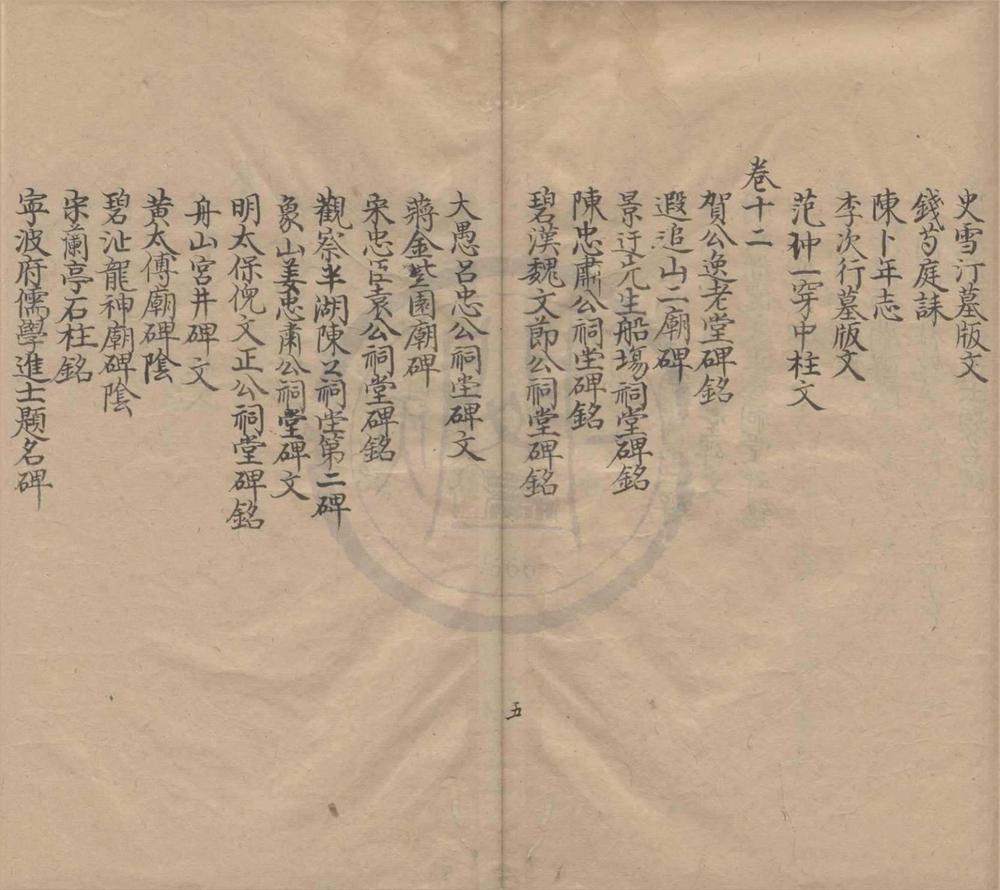 史雪汀墓版文
錢芍庭誄
陳卜年志
李次行墓版文
范冲一穿中柱文
卷十二
賀公逸老堂碑銘
遐追山二廟碑
景迂先生船塲祠堂碑銘
陳忠肅公祠堂碑銘
碧溪魏文節公祠堂碑銘
五
大愚呂忠公祠堂碑文
蔣金紫園廟碑
宋忠臣袁公祠堂碑銘
觀察半湖陳公祠堂第二碑
象山姜忠肅公祠堂碑文
明太保倪文正公祠堂碑銘
舟山宮井碑文
黃太傅廟碑陰
碧沚龍神廟碑陰
宋蘭亭石柱銘
寧波府儒學進士題名碑